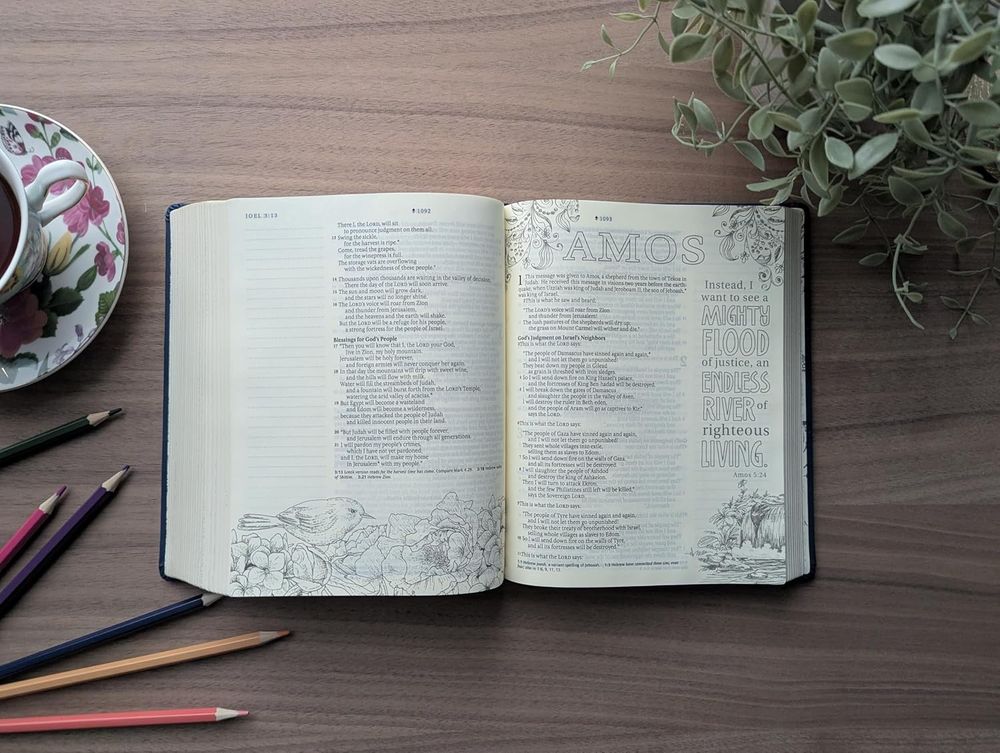 JOEL 3:13
1092
There I, the LORD, will sit
to pronounce judgment on them all.
13 Swing the sickle,
for the harvest is ripe.*
Come, tread the grapes,
for the winepress is full.
The storage vats are overflowing
with the wickedness of these people.”
14 Thousands upon thousands are waiting in the valley of decision.
There the day of the LORD will soon arrive.
15 The sun and moon will grow dark,
and the stars will no longer shine.
16 The LORD’s voice will roar from Zion
and thunder from Jerusalem,
and the heavens and the earth will shake.
But the LORD will be a refuge for his people,
a strong fortress for the people of Israel.
Blessings for God’s People
17 “Then you will know that I, the LORD your God,
live in Zion, my holy mountain.
Jerusalem will be holy forever,
and foreign armies will never conquer her again.
18 In that day the mountains will drip with sweet wine,
and the hills will flow with milk.
Water will fill the streambeds of Judah,
and a fountain will burst forth from the LORD’s Temple,
watering the arid valley of acacias.*
19 But Egypt will become a wasteland
and Edom will become a wilderness,
because they attacked the people of Judah
and killed innocent people in their land.
20 “But Judah will be filled with people forever,
and Jerusalem will endure through all generations.
21 I will pardon my people’s crimes,
which I have not yet pardoned;
and I, the LORD, will make my home
in Jerusalem* with my people.”
3:13 Greek version reads for the harvest time has come. Compare Mark 4:29. 3:18 Hebrew valley
of Shittim. 3:21 Hebrew Zion.
1093
AMOS
1 This message was given to Amos, a shepherd from the town of Tekoa in
Judah. He received this message in visions two years before the earth-
quake, when Uzziah was king of Judah and Jeroboam II, the son of Jehoash,*
was king of Israel.
2 This is what he saw and heard:
“The LORD’s voice will roar from Zion
and thunder from Jerusalem!
The lush pastures of the shepherds will dry up;
the grass on Mount Carmel will wither and die.”
God’s Judgment on Israel’s Neighbors
3 This is what the LORD says:
“The people of Damascus have sinned again and again,*
and I will not let them go unpunished!
They beat down my people in Gilead
as grain is threshed with iron sledges.
4 So I will send down fire on King Hazael’s palace,
and the fortresses of King Ben-hadad will be destroyed.
5 I will break down the gates of Damascus
and slaughter the people in the valley of Aven.
I will destroy the ruler in Beth-eden,
and the people of Aram will go as captives to Kir,”
says the LORD.
6 This is what the LORD says:
“The people of Gaza have sinned again and again,
and I will not let them go unpunished!
They sent whole villages into exile,
selling them as slaves to Edom.
7 So I will send down fire on the walls of Gaza,
and all its fortresses will be destroyed.
8 I will slaughter the people of Ashdod
and destroy the king of Ashkelon.
Then I will turn to attack Ekron,
and the few Philistines still left will be killed,”
says the Sovereign LORD.
9 This is what the LORD says:
“The people of Tyre have sinned again and again,
and I will not let them go unpunished!
They broke their treaty of brotherhood with Israel,
selling whole villages as slaves to Edom.
10 So I will send down fire on the walls of Tyre,
and all its fortresses will be destroyed.”
11 This is what the LORD says:
1:1 Hebrew Joash, a variant spelling of Jehoash. 1:3 Hebrew have committed three sins, even
four; also in 1:6, 9, 11, 13.
Instead, I
want to see a
MIGHTY
FLOOD
of justice, an
ENDLESS
RIVER of
righteous
LIVING.
Amos 5:24